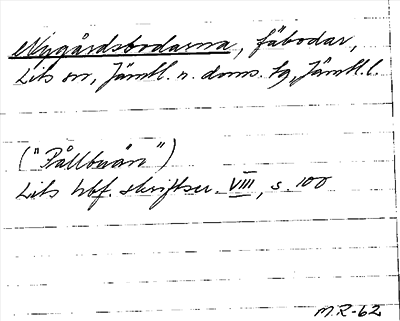 Nygårdsbodarna, fäbodar,
Lits sn, Jämtl. n. doms. tg, Jämtl. l.
("Pållbuän")
Lits hbf. skriftser. VIII, s. 100
M.R-62